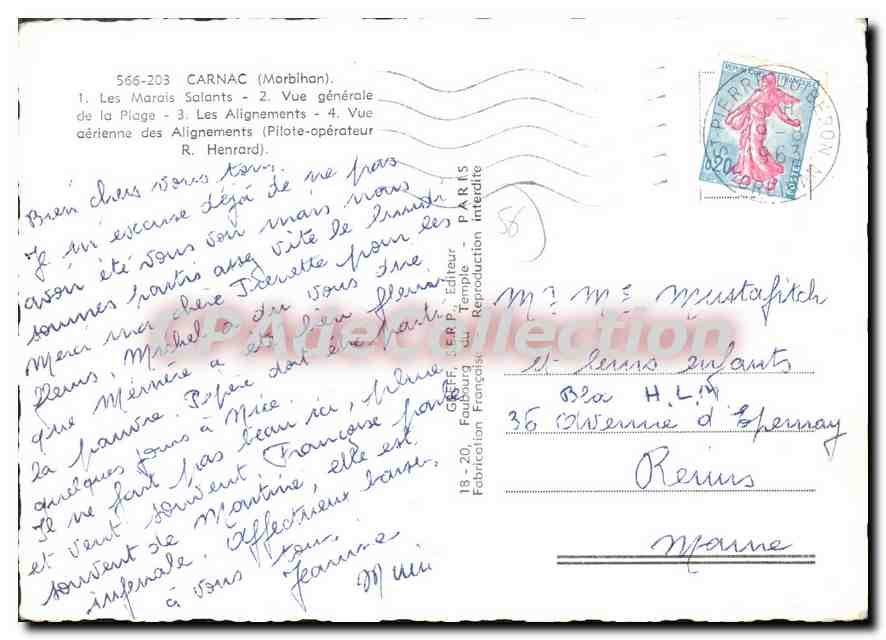 566-203 CARNAC (Morbihan).
1. Les Marais Salants - 2. Vue générale
de la Plage - 3. Les Alignements - 4. Vue
aérienne des Alignements (Pilote-opérateur
R. Henrard).
Bien chers vous tous,
Je m'excuse déjà de ne pas
avoir été vous voir mais nous
sommes partis assez vite le lundi
Merci ma chère Pierrette pour les
fleurs, Michel a du vous dire
que Mémère a été bien fleurie
la pauvre. Pépère doit être parti
quelques jours à Nice.
Il ne fait pas beau ici, pluie
et vent souvent. Françoise parle
souvent de Martine, elle est
infernale. Affectueux baisers
à vous tous.
Jeannine
Mimi
GREFF, S.E.R.P., Editeur
18-20, Faubourg du Temple - PARIS
Fabrication Française - Reproduction interdite
56
REPUBLIQUE FRANÇAISE
0,20
POSTES
ST PIERRE QUIBERON
9 - 8
1963
MORBIHAN
Mr Me Mustafitch
et leurs enfants
H.L.M
36 Avenue d'Epernay
Reims
Marne
CPAdeCollection